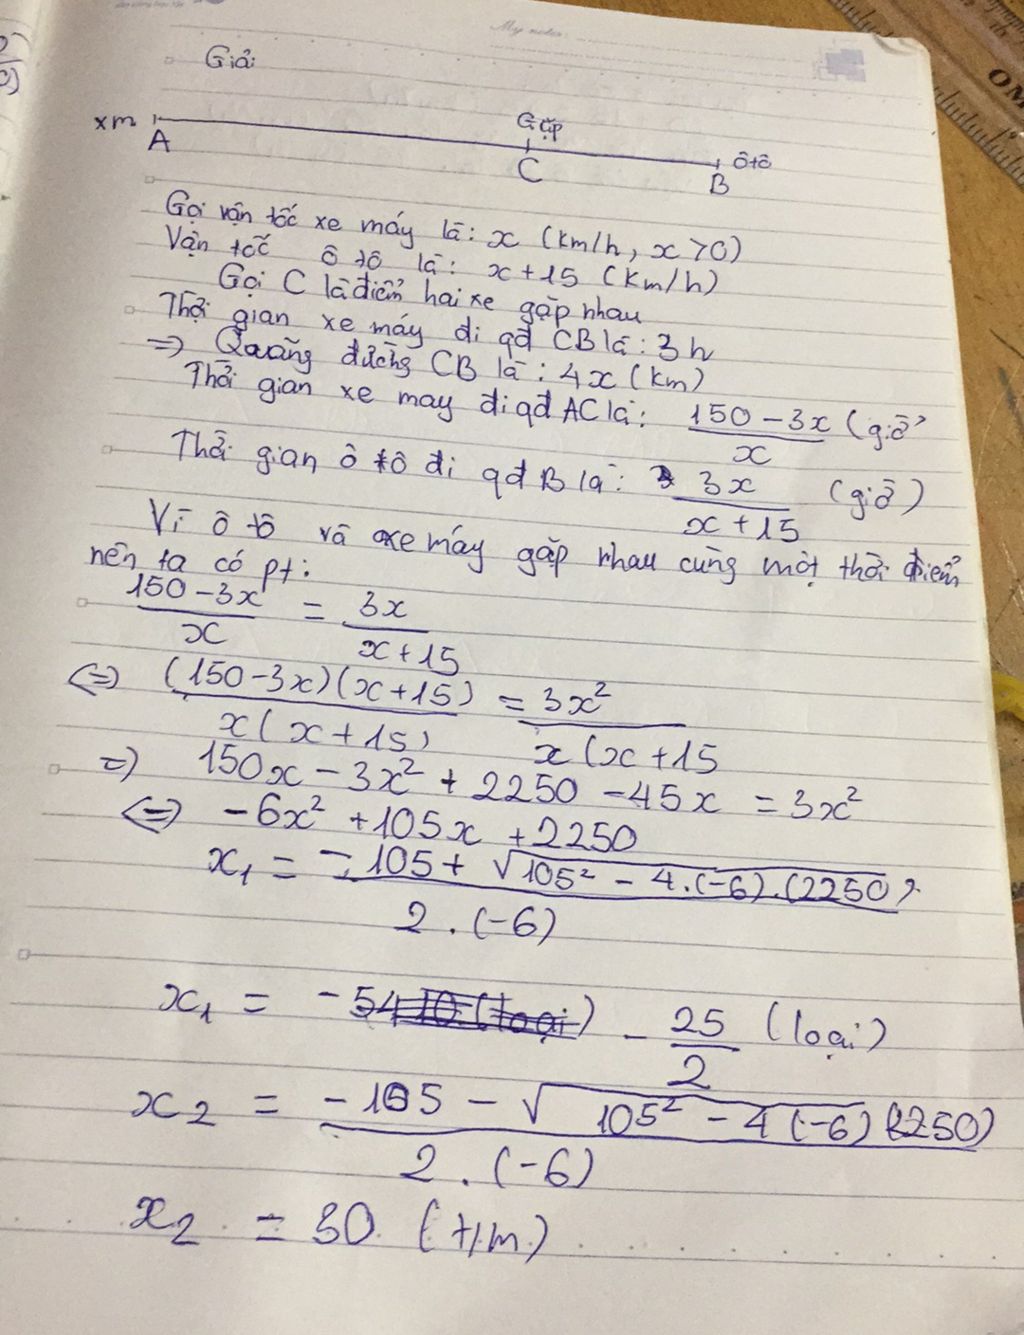 My notes
Giải
xm
Gặp
ô tô
A
C
B
Gọi vận tốc xe máy là: x (km/h, x > 0)
Vận tốc ô tô là: x + 15 (km/h)
Gọi C là điểm hai xe gặp nhau
Thời gian xe máy đi qđ CB là: 3h
=> Quãng đường CB là: 4x (km)
Thời gian xe may đi qđ AC là: (150 - 3x)/x (giờ)
Thời gian ô tô đi qđ B là: 3x/(x + 15) (giờ)
Vì ô tô và xe máy gặp nhau cùng một thời điểm
nên ta có pt:
(150 - 3x)/x = 3x/(x + 15)
<=> (150 - 3x)(x + 15)/x(x + 15) = 3x²/x(x + 15
=> 150x - 3x² + 2250 - 45x = 3x²
<=> -6x² + 105x + 2250
x₁ = (-105 + √(105² - 4.(-6).(2250)))/2.(-6)
x₁ = -25/2 (loại)
x₂ = (-105 - √(105² - 4(-6)(2250)))/2.(-6)
x₂ = 30 (t/m)